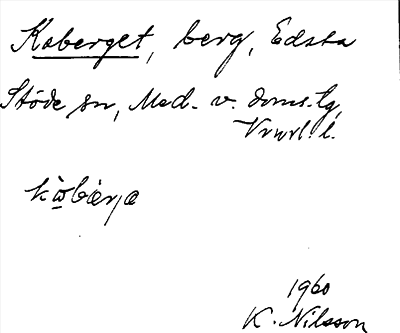 Kaberget, berg, Edsta
Stöde sn, Med. v. doms. tg,
Vnrl. l.
kàbærjæ
1960
K. Nilsson